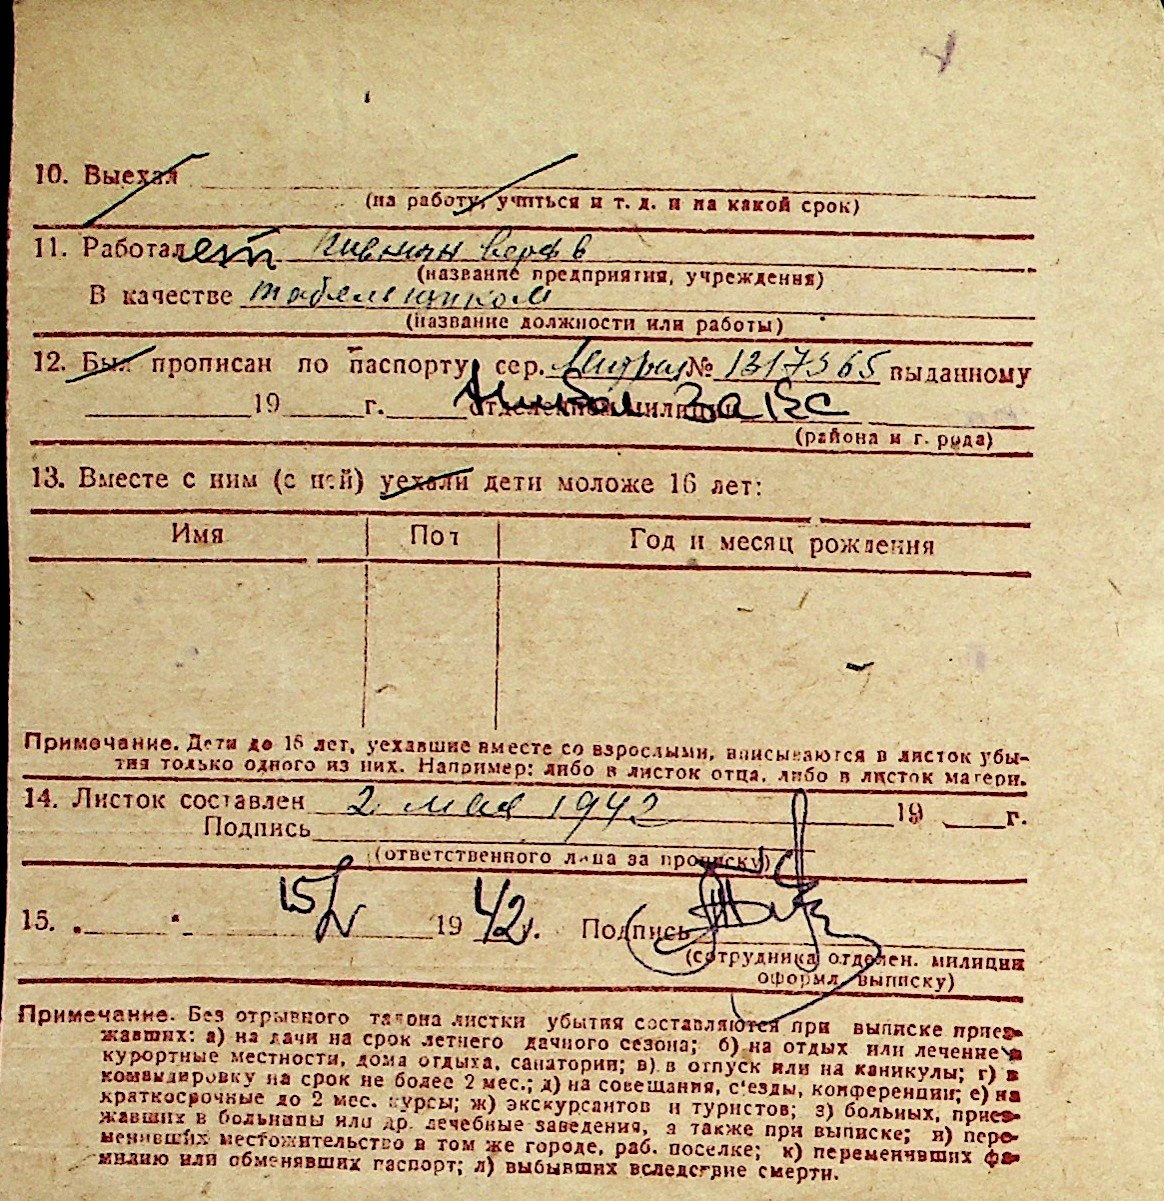 10. Выехал
(на работу, учиться и т. д. и на какой срок)
11. Работает
(название предприятия, учреждения)
В качестве табельщиком
(название должности или работы)
12. Был прописан по паспорту сер. № 1317365 выданному
19 г. отделением милиции
(района и города)
13. Вместе с ним (с ней) уехали дети моложе 16 лет:
Имя Пол Год и месяц рождения
Примечание. Дети до 16 лет, уехавшие вместе со взрослыми, вписываются в листок убы-
тия только одного из них. Например: либо в листок отца, либо в листок матери.
14. Листок составлен 2 мая 1942 19 г.
Подпись
(ответственного лица за прописку)
15. „ “ 15/V 1942. Подпись
(сотрудника отделен. милиции
оформл. выписку)
Примечание. Без отрывного талона листки убытия составляются при выписке приез-
жавших: а) на дачи на срок летнего дачного сезона; б) на отдых или лечение в
курортные местности, дома отдыха, санатории; в) в отпуск или на каникулы; г) в
командировку на срок не более 2 мес.; д) на совещания, с'езды, конференции; е) на
краткосрочные до 2 мес. курсы; ж) экскурсантов и туристов; з) больных, приез-
жавших в больницы или др. лечебные заведения, а также при выписке; и) пере-
менивших местожительство в том же городе, раб. поселке; к) переменивших фа-
милию или обменявших паспорт; л) выбывших вследствие смерти.